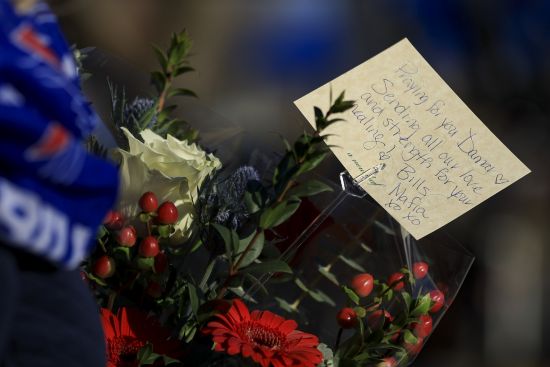 Praying for you Damar ♡
Sending all our love
and strength for your
healing ♡
Bills
Mafia
xoxo